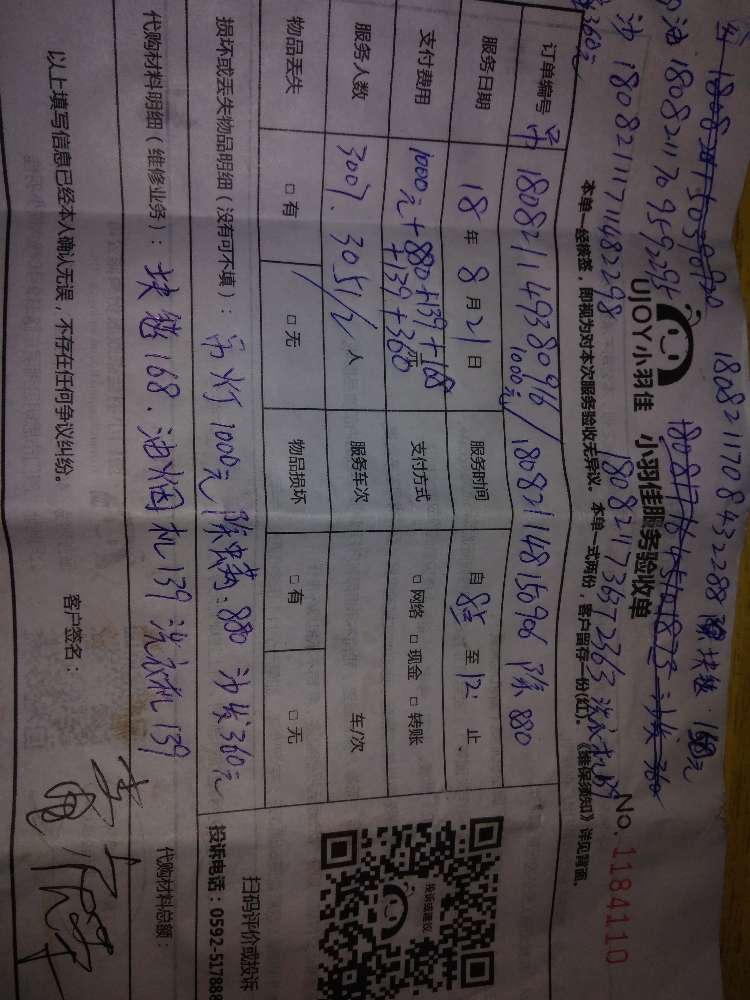 180821170843 2288 除块毯 168元
油 180821170959295
沙 18082111711482298
360元
UJOY小羽佳 小羽佳服务验收单
No.1184110
180821173672363 洗衣机139
本单一经核签,即视为对本次服务验收无异议。本单一式两份,客户留存一份(红)。《维保须知》详见背面。
订单编号 吊 180821149380916 1000元/180821148156906 除 880
服务日期 18年8月21日 服务时间 自 8点 至 12: 止
支付费用 1000元+880+139+168+139+360 元 支付方式 □网络 □现金 □转账
服务人数 3007、3051/2 人 服务车次 车/次
物品丢失 □有 □无 物品损坏 □有 □无
损坏或丢失物品明细(没有可不填): 吊灯1000元 除螨:880 沙发360元
代购材料明细(维修业务): 块毯168、油烟机139 洗衣机139
代购材料总额:
以上填写信息已经本人确认无误,不存在任何争议纠纷。
客户签名:
投诉或建议
扫码评价或投诉
投诉电话:0592-517888